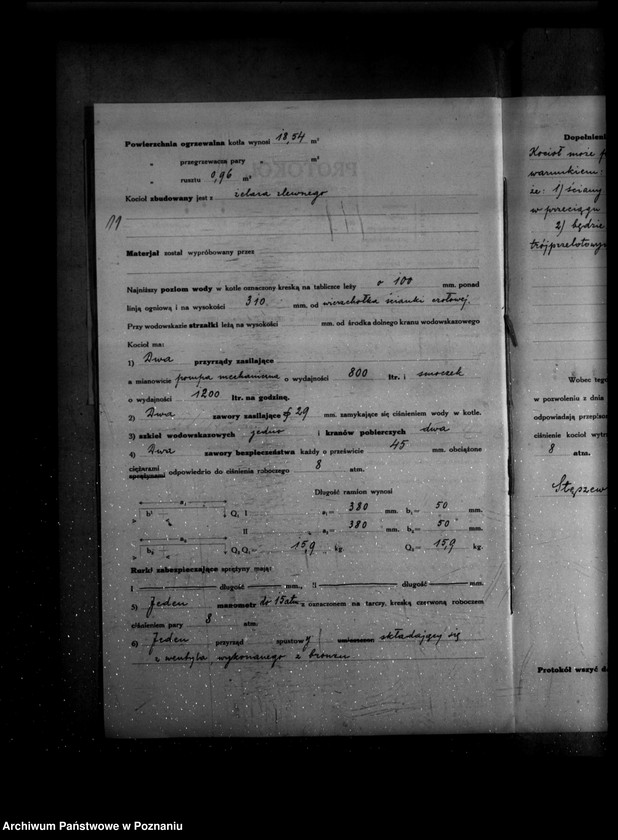 Powierzchnia ogrzewalna kotła wynosi 18,54 m²
„ przegrzewacza pary „ m²
„ rusztu 0,96 m²
Kocioł zbudowany jest z żelaza zlewnego
Materjał został wypróbowany przez
Najniższy poziom wody w kotle oznaczony kreską na tabliczce leży o 100 mm. ponad
linją ogniową i na wysokości 310 mm. od wierzchołka ścianki czołowej.
Przy wodowskazie strzałki leżą na wysokości mm. od środka dolnego kranu wodowskazowego
Kocioł ma:
1) Dwa przyrządy zasilające
a mianowicie pompa mechaniczna o wydajności 800 ltr. i smoczek
o wydajności 1200 ltr. na godzinę.
2) Dwa zawory zasilające ⌀ 29 mm. zamykające się ciśnieniem wody w kotle.
3) szkieł wodowskazowych jedno i kranów pobierczych dwa
4) Dwa zawory bezpieczeństwa każdy o prześwicie 45 mm. obciążone
ciężarami
sprężynami odpowiednio do ciśnienia roboczego 8 atm.
Długość ramion wynosi
a₁
b¹ Q₁ I a₁ = 380 mm. b₁ = 50 mm.
II a₂ = 380 mm. b₂ = 50 mm.
a₂
b₂ Q₂ Q₁ = 15,9 kg Q₂ = 15,9 kg.
Rurki zabezpieczające sprężyny mają:
I długość mm., II długość mm.
5) Jeden manometr do 15 atm z oznaczonem na tarczy, kreską czerwoną roboczem
ciśnieniem pary 8 atm.
6) Jeden przyrząd spustowy umieszczon składający się
z wentyla wykonanego z bronzu
11
Dopełnieni
Kocioł może
warunkiem:
że: 1) ściany
w przeciągu
2) będzie
trójprzelotowy
Wobec tego
w pozwoleniu z dnia
odpowiadają przepiso
ciśnienie kocioł wytr
8 atm.
Stęszew
Protokół wszyć do
Archiwum Państwowe w Poznaniu